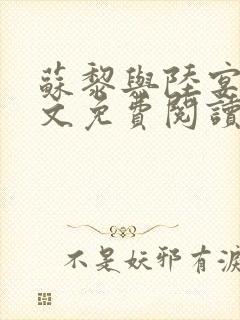 蘇黎與陸宴
文免費閱讀
不是妖邪有淚